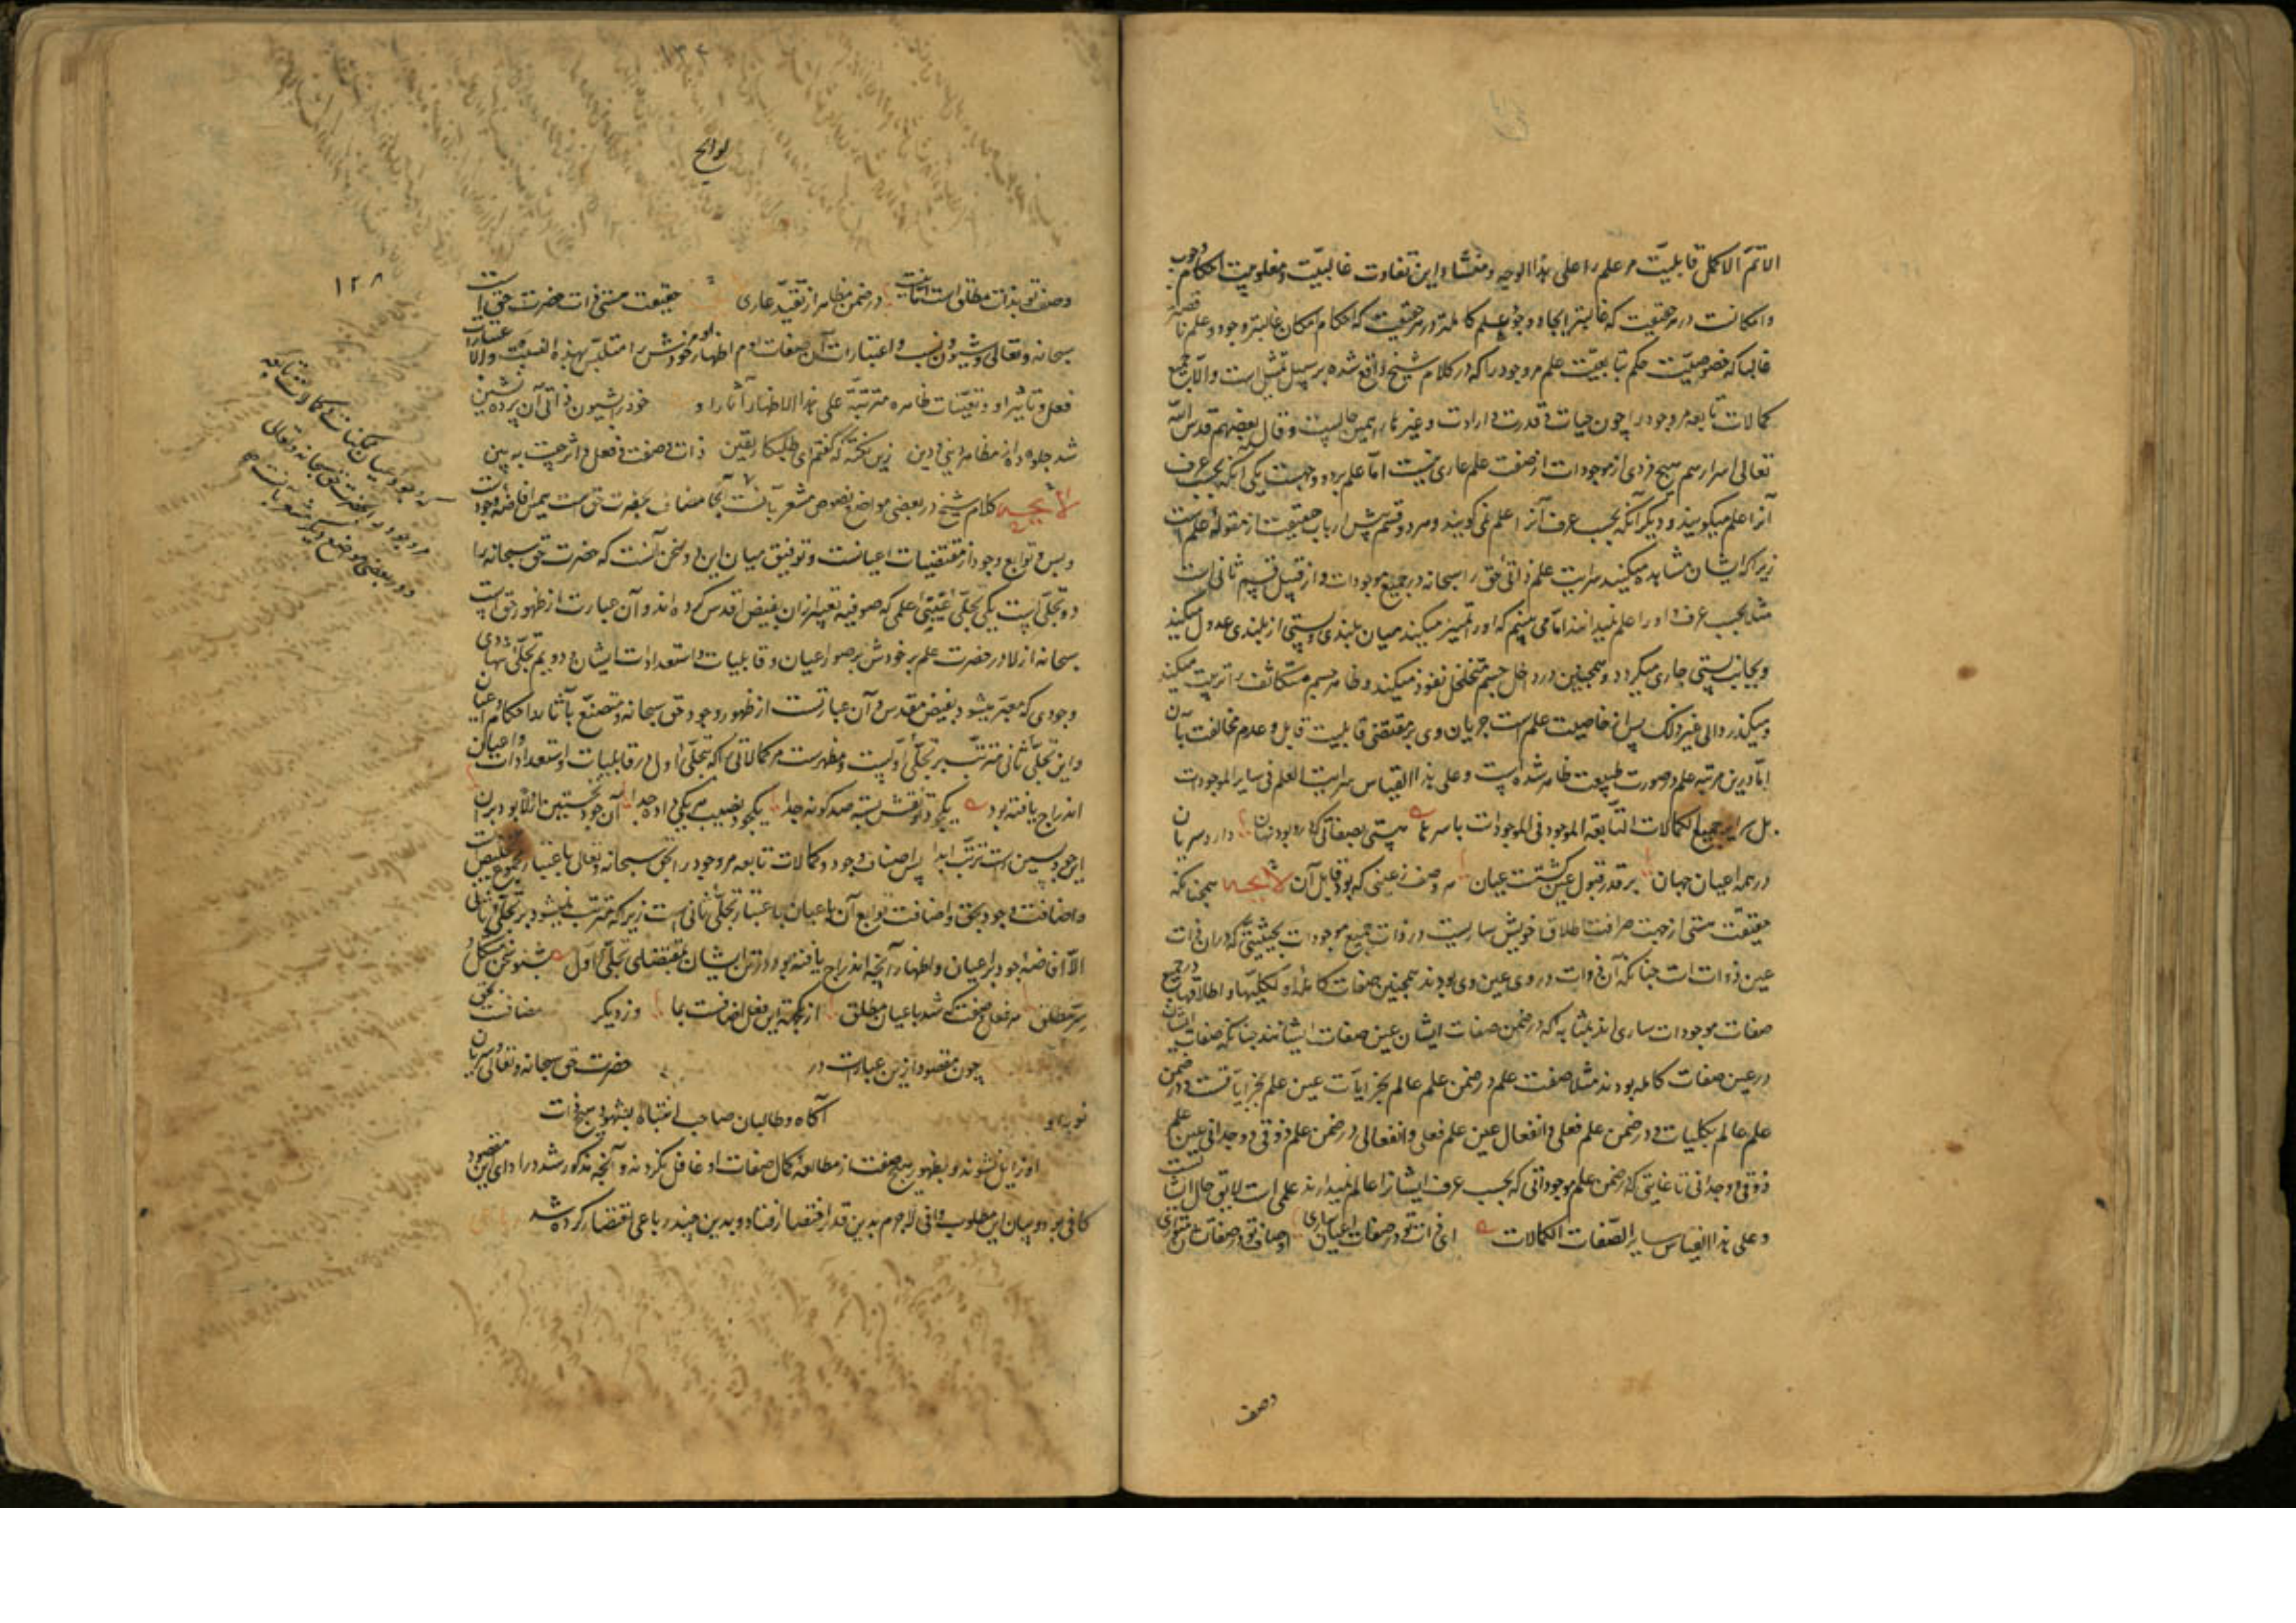 الاتمّ الاکمل قابلیّت مر علم را علی هذا الوجه و منشاء این تفاوت غالبیّت و مغلوبیت احکام وجوب
و امکانست در هر حقیقت که غالبتر آنجا وجود و علم کاملتر و در هر حقیقت که احکام امکان غالبتر وجود و علم ناقصتر
غالبا که خصوصیّت حکم تابعیّت علم مر وجود را که در کلام شیخ واقع شده بر سبیل تمثیل است و الّا جمیع
کمالات تابعه مر وجود را چون حیات و قدرت و ارادت و غیرها را همین حالست و قال بعضهم قدس الله
تعالی اسرارهم هیچ فردی از موجودات از صفت علم عاری نیست امّا علم بر دو وجهست یکی آنکه بحسب عرف
آنرا علم میگویند و دیگر آنکه بحسب عرف آنرا علم نمی گویند و هر دو قسم پیش ارباب حقیقت از مقوله علم است
زیرا که ایشان مشاهده میکنند سرایت علم ذاتی حق را سبحانه در جمیع موجودات و از قبیل قسم ثانی است
مثلا بحسب عرف او را عالم نمیدانند امّا می بینیم که او را تمییز میکند میان بلندی و پستی از بلندی عدول میکند
و بجانب پستی جاری میگردد و همچنین در داخل جسم متخلخل نفوذ میکند و ظاهر جسم متکاثف را تر میکند
و میگذرد الی غیر ذلک پس از خاصیت علم است جریان وی بر مقتضی قابلیت قابل و عدم مخالفت با آن
امّا درین مرتبه علم در صورت طبیعت ظاهر شده است و علی هذا القیاس سرایت العلم فی سایر الموجودات
بل سرایة جمیع الکمالات التّابعة للموجود فی الموجودات باسرها هستی بصفاتی که درو بود نهان دارد سریان
در همه اعیان جهان بر قدر قبول عین گشتست عیان هر وصف ز عینی که بود قابل آن لایحه همچنانکه
حقیقت هستی از جهت صرافت اطلاق خویش ساریست در ذوات جمیع موجودات بحیثیتی که در آن ذوات
عین ذوات است چنانکه آن ذوات در وی عین وی بودند همچنین صفات کامله او بکلیّتها و اطلاقها در جمیع
صفات موجودات ساری اند بمثابه که در ضمن صفات ایشان عین صفات ایشانند چنانکه صفات ایشان
در عین صفات کامله بودند مثلا صفت علم در ضمن علم عالم بجزئیّات عین علم بجزئیاتست و در ضمن
علم عالم بکلیات و در ضمن علم فعلی و انفعالی عین علم فعلی و انفعالی و در ضمن علم ذوقی و وجدانی عین علم
ذوقی و وجدانی تا غایتی که در ضمن علم موجوداتی که بحسب عرف ایشانرا عالم نمیدارند علمی است لایق حال ایشان
و علی هذا القیاس سایر الصّفات الکمالات ای ذات تو در صفات اعیان ساری اوصاف تو در صفاتشان متواری
وصف
لوایح
۱۲۸
وصف تو بذات مطلق است امّا نیست در ضمن مظاهر از تقیّد عاری حقیقت هستی ذات حضرت حق است
سبحانه و تعالی و شیون و نسب و اعتبارات آن صفات او و اظهار او مر خودش را متلبّس بهذه النسب و الاعتبارات
فعل و تاثیر او و تعیّنات ظاهره مترتبّه علی هذا الاظهار آثار او خود را بشیون ذاتی آن پرده نشین
شد جلوه ده از مظاهر دنیی و دین زین نکته که گفتم ای طلبکار یقین ذات و صفت و فعل و اثر چیست به بین
لایحه کلام شیخ در بعضی مواضع فصوص مشعر بآنست آنجا مضاف بحضرت حق است همین افاضه وجودست
و بس و توابع وجود از مقتضیات اعیانست و توفیق میان این دو سخن آنست که حضرت حق سبحانه را
دو تجلّی است یکی تجلّی غیبی علمی که صوفیه تعبیر از آن بفیض اقدس کرده اند و آن عبارت از ظهور حق است
سبحانه ازلا در حضرت علم بر خودش بر صور اعیان و قابلیات و استعدادات ایشان و دویم تجلّی شهادی
وجودی که معبّر میشود بفیض مقدس و آن عبارتست از ظهور وجود حق سبحانه و منصبغ بآثار و احکام اعیان
و این تجلّی ثانی مترتب بر تجلّی اولست و مظهرست مر کمالاتی را که بتجلّی اول در قابلیات و استعدادات اعیان
اندراج یافته بود یکجود تو نقش بسته صد گونه گدا یکجود نصیب هر یکی داده جدا آن جود نخستین ازلا بود و بران
این جود پسین است ترتّب ابدا پس اضافت وجود و کمالات تابعه مر وجود را بحق سبحانه و تعالی باعتبار مجموع تجلیین است
و اضافت وجود بحق و اضافت توابع آن باعیان باعتبار تجلّی ثانی است زیرا که مترتب نمیشود بر تجلّی ثانی
الّا افاضه وجود بر اعیان و اظهار آنچه اندراج یافته بود در ایشان بمقتضای تجلّی اول بشنو سخن مشکل و
سرّ مطلق هر فعل و صفت که شد باعیان ملحق از یکجهت این فعل اضافت بما وز دیگر مضافست بحق
چون مقصود ازین عبارات در حضرت حق سبحانه و تعالی و سریان
نور او آگاه و طالبان صاحب انتباه بشهود هیچ ذات
او ذاهل نشوند و بظهور هیچ صفت از مطالعه کمال صفات او غافل نگردند و آنچه مذکور شد در ادای این مقصود
کافی بود و بیان این مطلوب وافی لاجرم بدین قدر اختصار افتاد و بدین چند رباعی اقتصار کرده شد
که وجود اعیان ممکنات و کمالات تابعه
مر وجود را بحضرت حق سبحانه و تعالی
و در بعضی مواضع دیگر مشعر بآنست